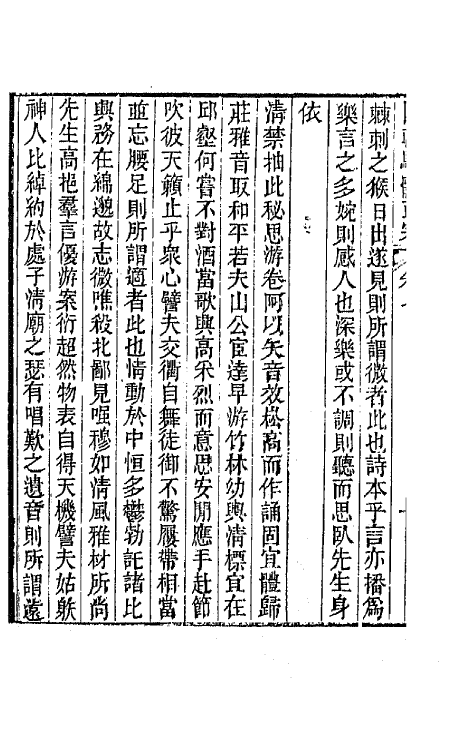 棘刺之猴日出遂見則所謂微者此也詩本乎言亦播爲
樂言之多婉則感人也深樂或不調則聽而思臥先生身
依
清禁抽此秘思游卷阿以矢音效崧高而作誦固宜體歸
莊雅音取和平若夫山公宦達早游竹林幼輿清標宜在
邱壑何嘗不對酒當歌興高采烈而意思安閒應手赴節
吹彼天籟止乎衆心譬夫交衢自舞徒御不驚履帶相當
並忘腰足則所謂適者此也情動於中恒多鬱勃託諸比
興務在綿邈故志微噍殺北鄙見嗤穆如清風雅材所尚
先生高挹羣言優游案衍超然物表自得天機譬夫姑射
神人比綽約於處子清廟之瑟有唱歎之遺音則所謂遠